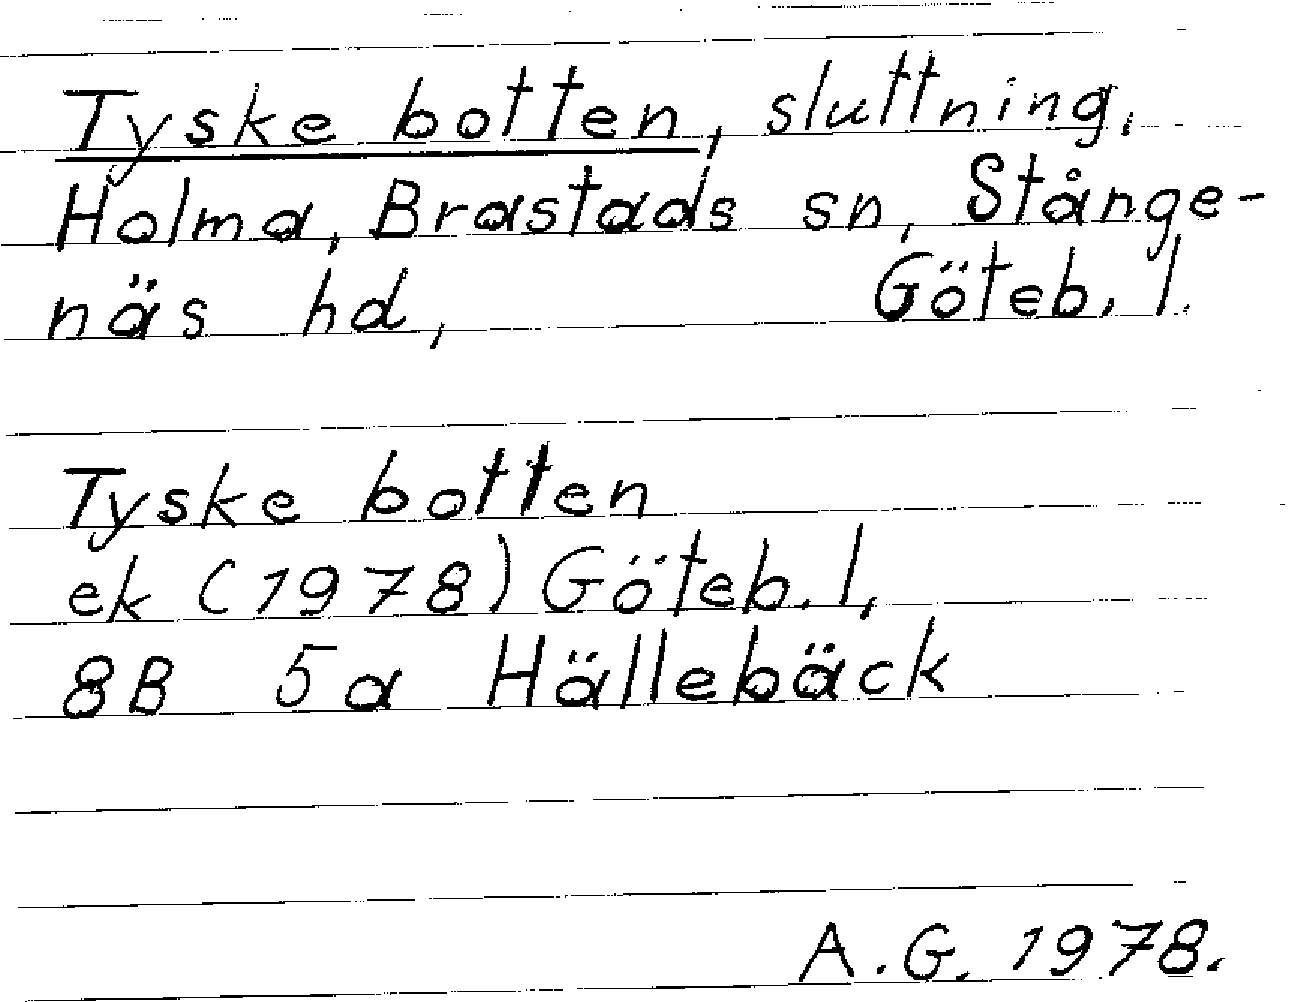 Tyske botten, sluttning,
Holma, Brastads sn, Stånge-
näs hd, Göteb. l.
Tyske botten
ek (1978) Göteb. l,
8B 5a Hällebäck
A.G. 1978.